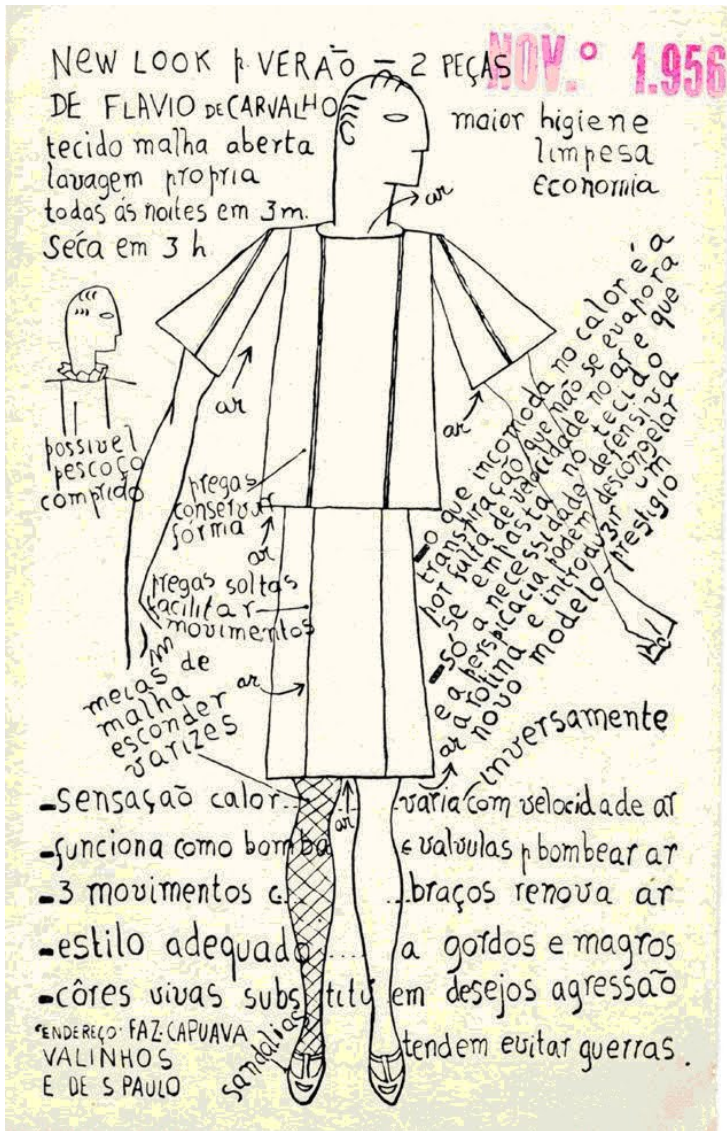 NEW LOOK p. VERÃO — 2 PEÇAS
NOV.º 1.956
DE FLAVIO DE CARVALHO
tecido malha aberta
lavagem propria
todas ás noites em 3m.
Séca em 3 h.
maior higiene
limpesa
economia
ar
possivel
pescoço
comprido
ar
ar
pregas
conservar
fórma
ar
pregas soltas
facilitar
movimentos
ar
meias de
malha
esconder
varizes
—o que incomoda no calor é a
transpiração que não se evapora
por falta de velocidade no ar e que
se empasta no tecido
—só a necessidade defensiva
e a perspicacia podem descongelar
a rotina e introduzir um
novo modelo-prestigio
ar
inversamente
-sensaçaõ calor.. ..varia com velocidade ar
ar
-funciona como bomba e valvulas p bombear ar
-3 movimentos c... ...braços renova ar
-estilo adequado.... a gordos e magros
-côres vivas substitúem desejos agressão
tendem evitar guerras.
ENDEREÇO: FAZ. CAPUAVA
VALINHOS
E DE S PAULO
sandalias